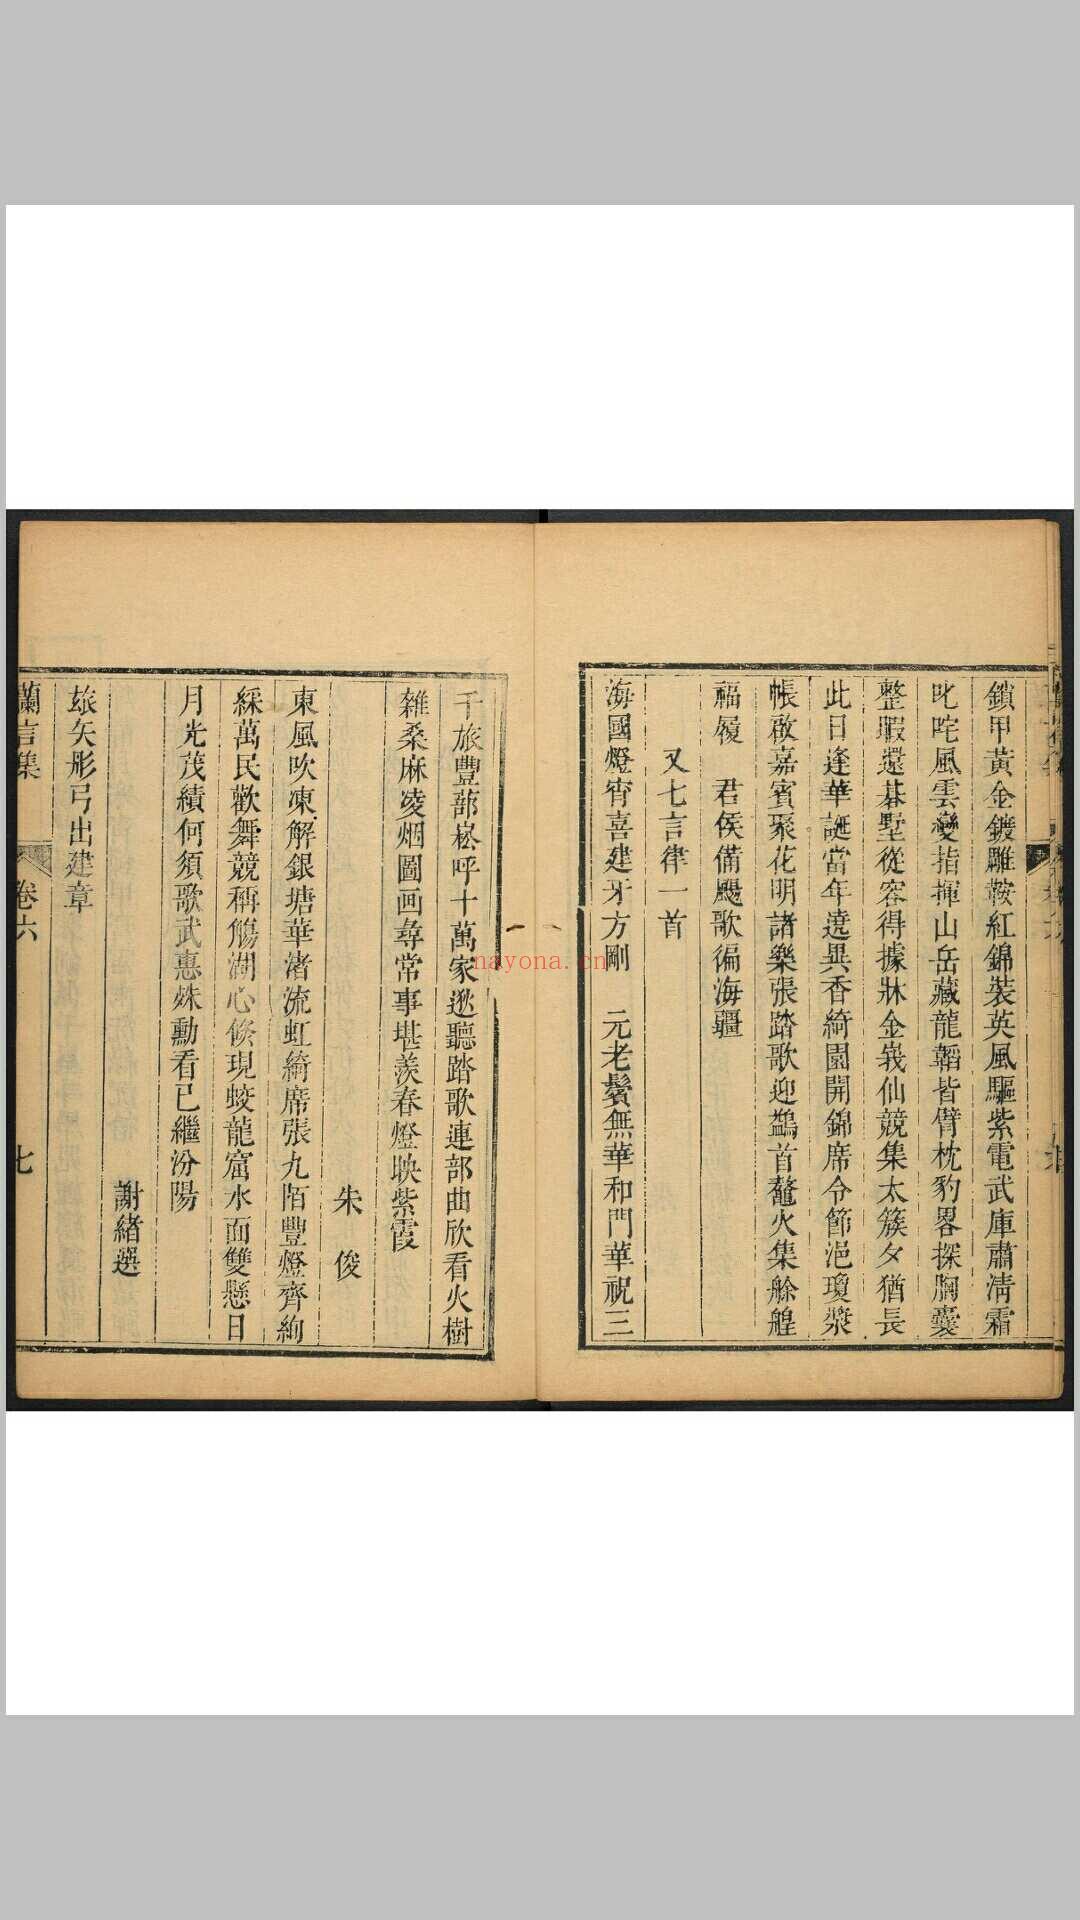 鎖甲黃金鍍雕鞍紅錦裝英風驅紫電武庫肅淸霜
叱咤風雲變指揮山岳藏龍韜皆臂枕豹畧探胸囊
整暇還碁墅從容得據牀金㦸仙競集太簇夕猶長
此日逢華誕當年遶異香綺園開錦席令節浥瓊漿
帳啟嘉賓聚花明諸樂張踏歌迎鷁首鼇火集艅艎
福履 君侯備颺歌徧海疆
又七言律一首
海國燈宵喜建牙方剛 元老鬢無華和門華祝三
千旅豐蔀崧呼十萬家遯聽踏歌連部曲欣看火樹
雜桑麻凌烟圖画尋常事堪羨春燈映紫霞
朱 俊
東風吹凍解銀塘華渚流虹綺席張九陌豐燈齊絢
綵萬民歡舞競稱觴湖心倏現蛟龍窟水面雙懸日
月光茂績何須歌武惠殊勳看已繼汾陽
謝緒選
旅矢彤弓出建章
蘭言集
卷六
七
nayona.cn